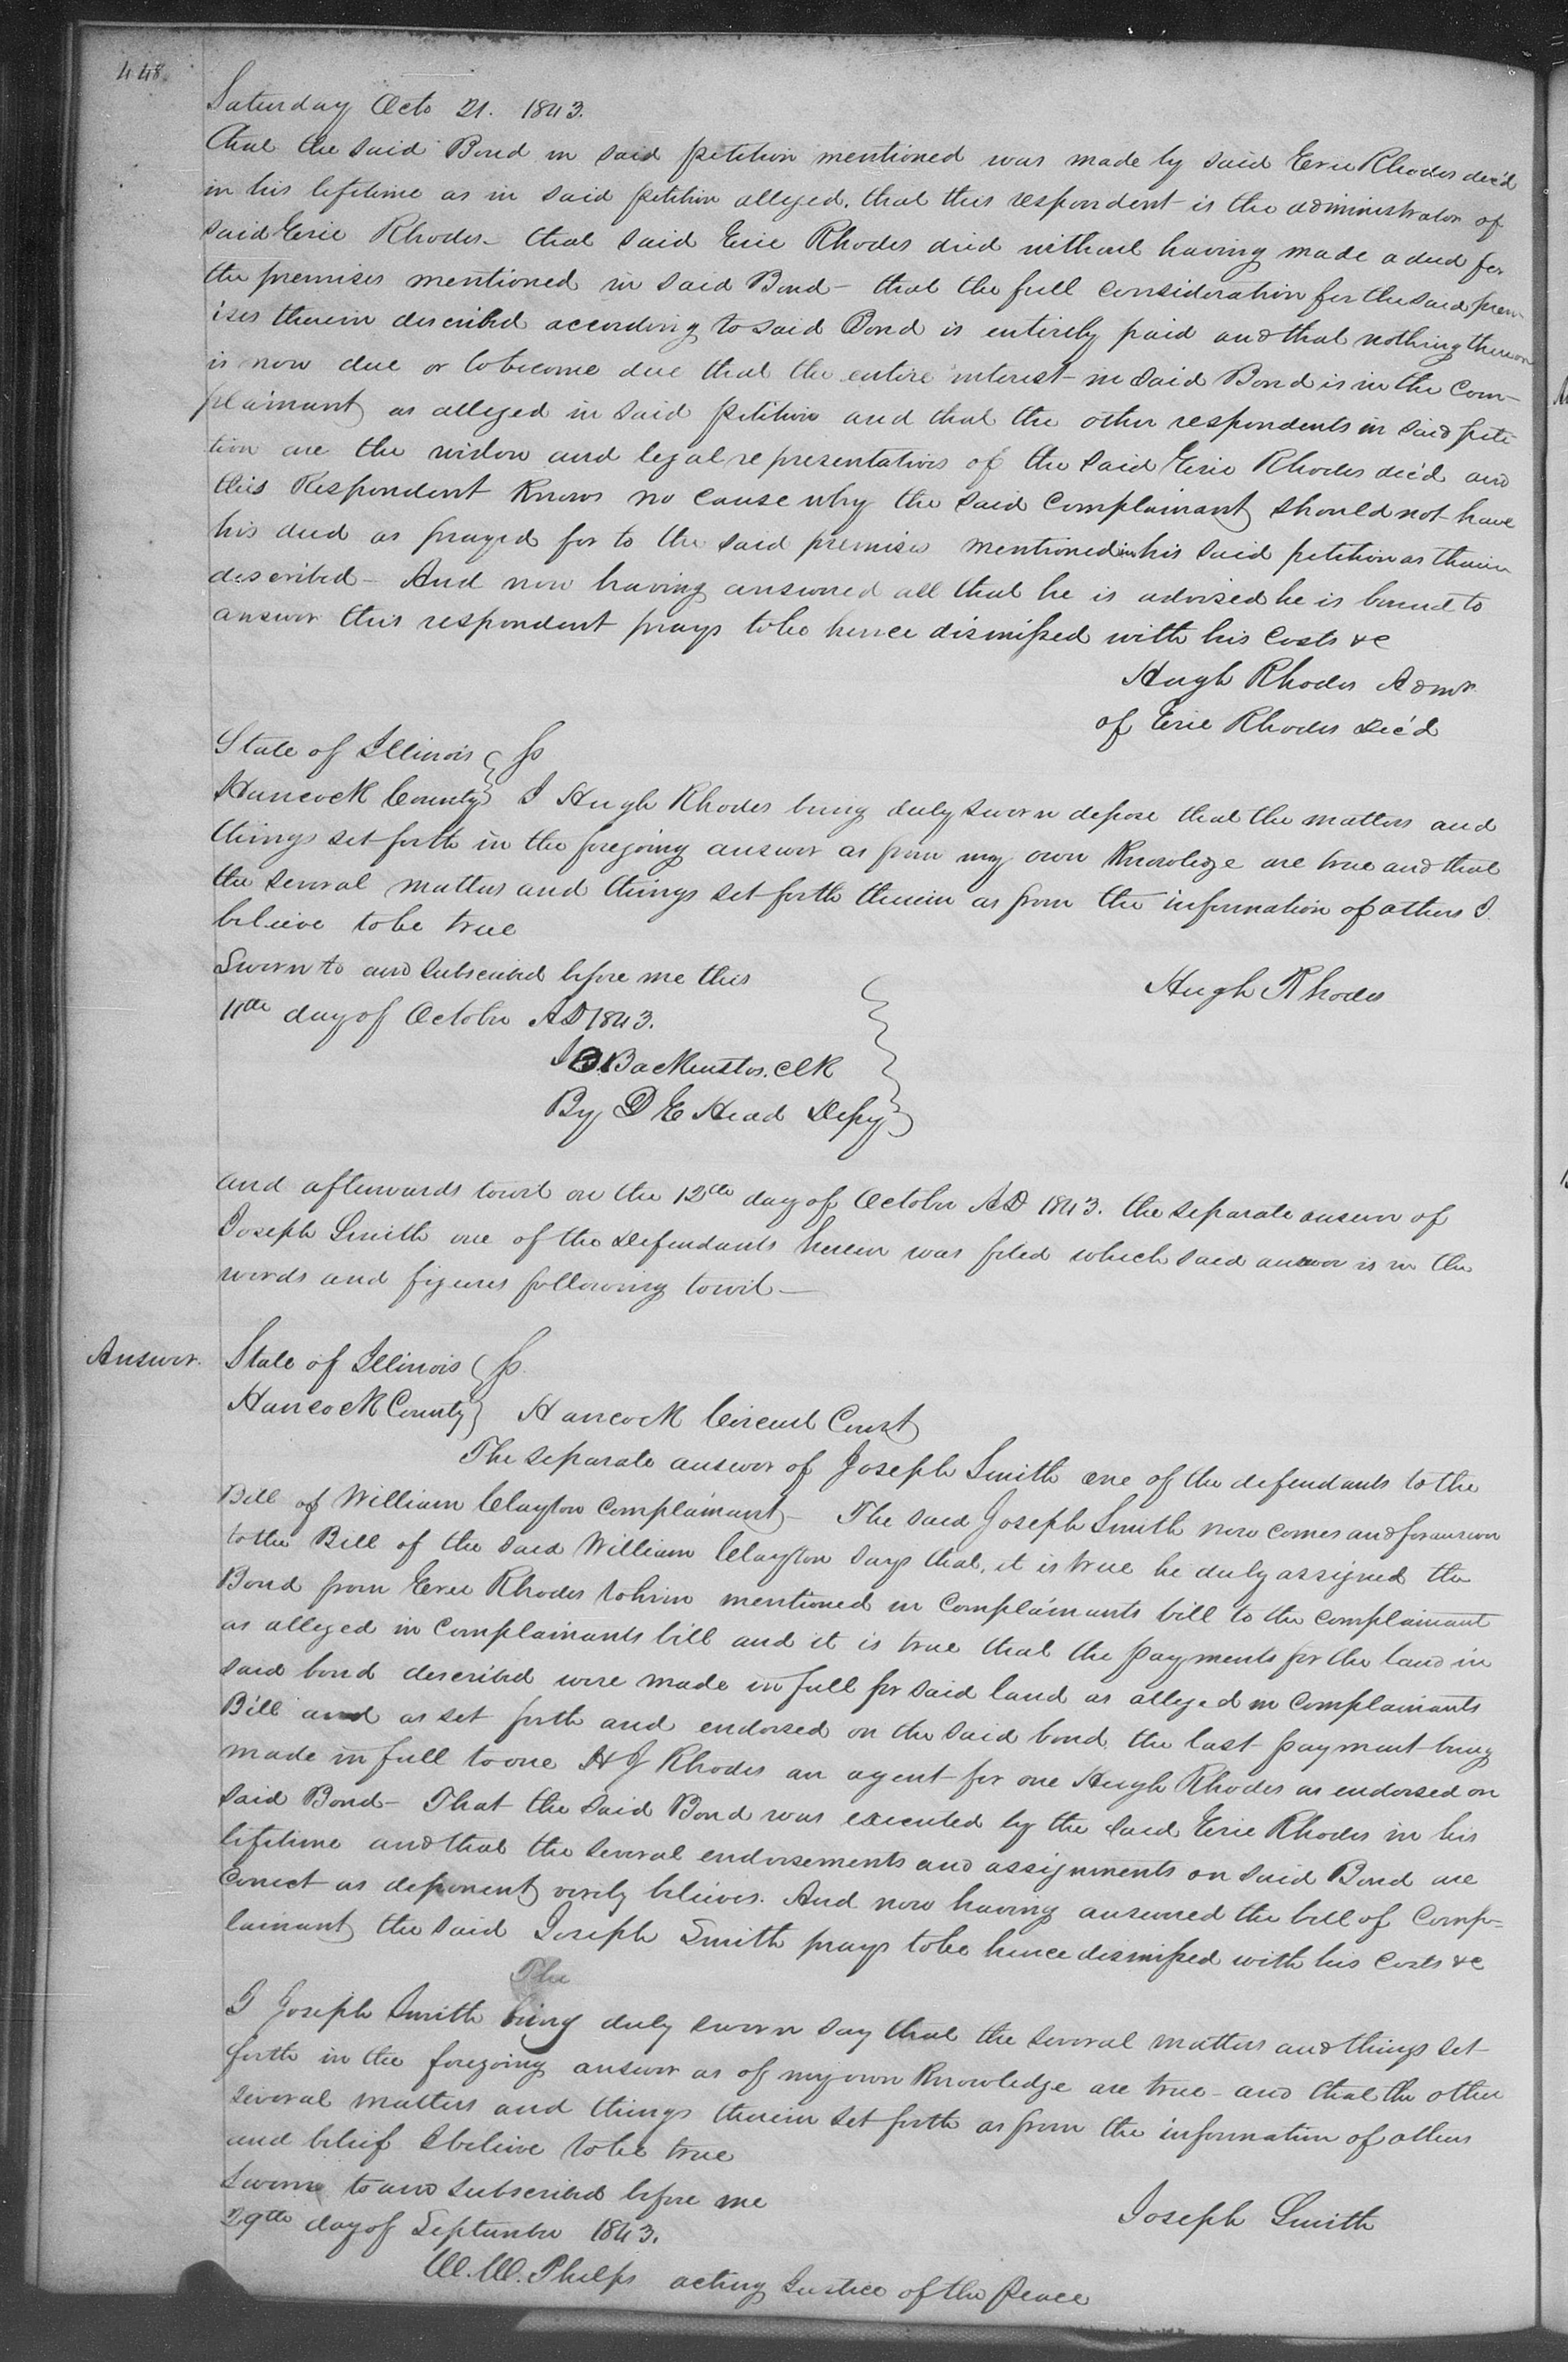 448
Saturday Octo 21. 1843.
that the said Bond in said petition mentioned was made by said Erie Rhodes dec'd
in his lifetime as in said petition alleged. that this respondent is the administrator of
said Erie Rhodes— that said Erie Rhodes died without having made a deed for
the premises mentioned in said Bond— that the full consideration for the said prem-
ises therein described according to said Bond is entirely paid and that nothing thereon
is now due or to become due that the entire interest in said Bond is in the Com-
plainant as alleged in said petition and that the other respondents in said peti
tion are the widow and legal representatives of the said Erie Rhodes dec'd and
this Respondent knows no cause why the said Complainant should not have
his deed as prayed for to the said premises mentioned in his said petition as therein
described— And now having answered all that he is advised he is bound to
answer this respondent prays to be hence dismissed with his Costs &c
Hugh Rhodes Admr.
of Erie Rhodes Dec'd
State of Illinois } ss
Hancock County } I Hugh Rhodes being duly sworn depose that the matters and
things set forth in the foregoing answer as from my own Knowledge are true and that
the several matters and things set forth therein as from the information of others I
believe to be true
Sworn to and subscribed before me this
Hugh Rhodes
11th day of October AD 1843.
J B. Backenstos. Clk
By D E Head Depy
and afterwards towit on the 12th day of October AD 1843. the separate answer of
Joseph Smith one of the Defendants herein was filed which said answer is in the
words and figures following towit—
Answer. State of Illinois } ss
Hancock County } Hancock Circuit Court
The separate answer of Joseph Smith one of the defendants to the
Bill of William Clayton Complainant— The said Joseph Smith now comes and for answer
to the Bill of the said William Clayton says that, it is true he duly assigned the
Bond from Erie Rhodes to him mentioned in Complainants bill to the complainant
as alleged in Complainants bill and it is true that the payments for the land in
said bond described were made in full for said land as alleged in Complainants
Bill and as set forth and endorsed on the said bond the last payment being
made in full to one H J Rhodes an agent for one Hugh Rhodes as endorsed on
said Bond— That the said Bond was executed by the said Erie Rhodes in his
lifetime and that the several endorsements and assignments on said Bond are
correct as deponent verily believes. And now having answered the bill of Comp=
lainant the said Joseph Smith prays to be hence dismissed with his Costs &c
The
I Joseph Smith being duly sworn say that the several matters and things set
forth in the foregoing answer as of my own Knowledge are true— and that the other
several matters and things therein set forth as from the information of others
and belief I believe to be true
Sworn to and subscribed before me
Joseph Smith
29th day of September 1843.
W. W. Phelps acting Justice of the Peace